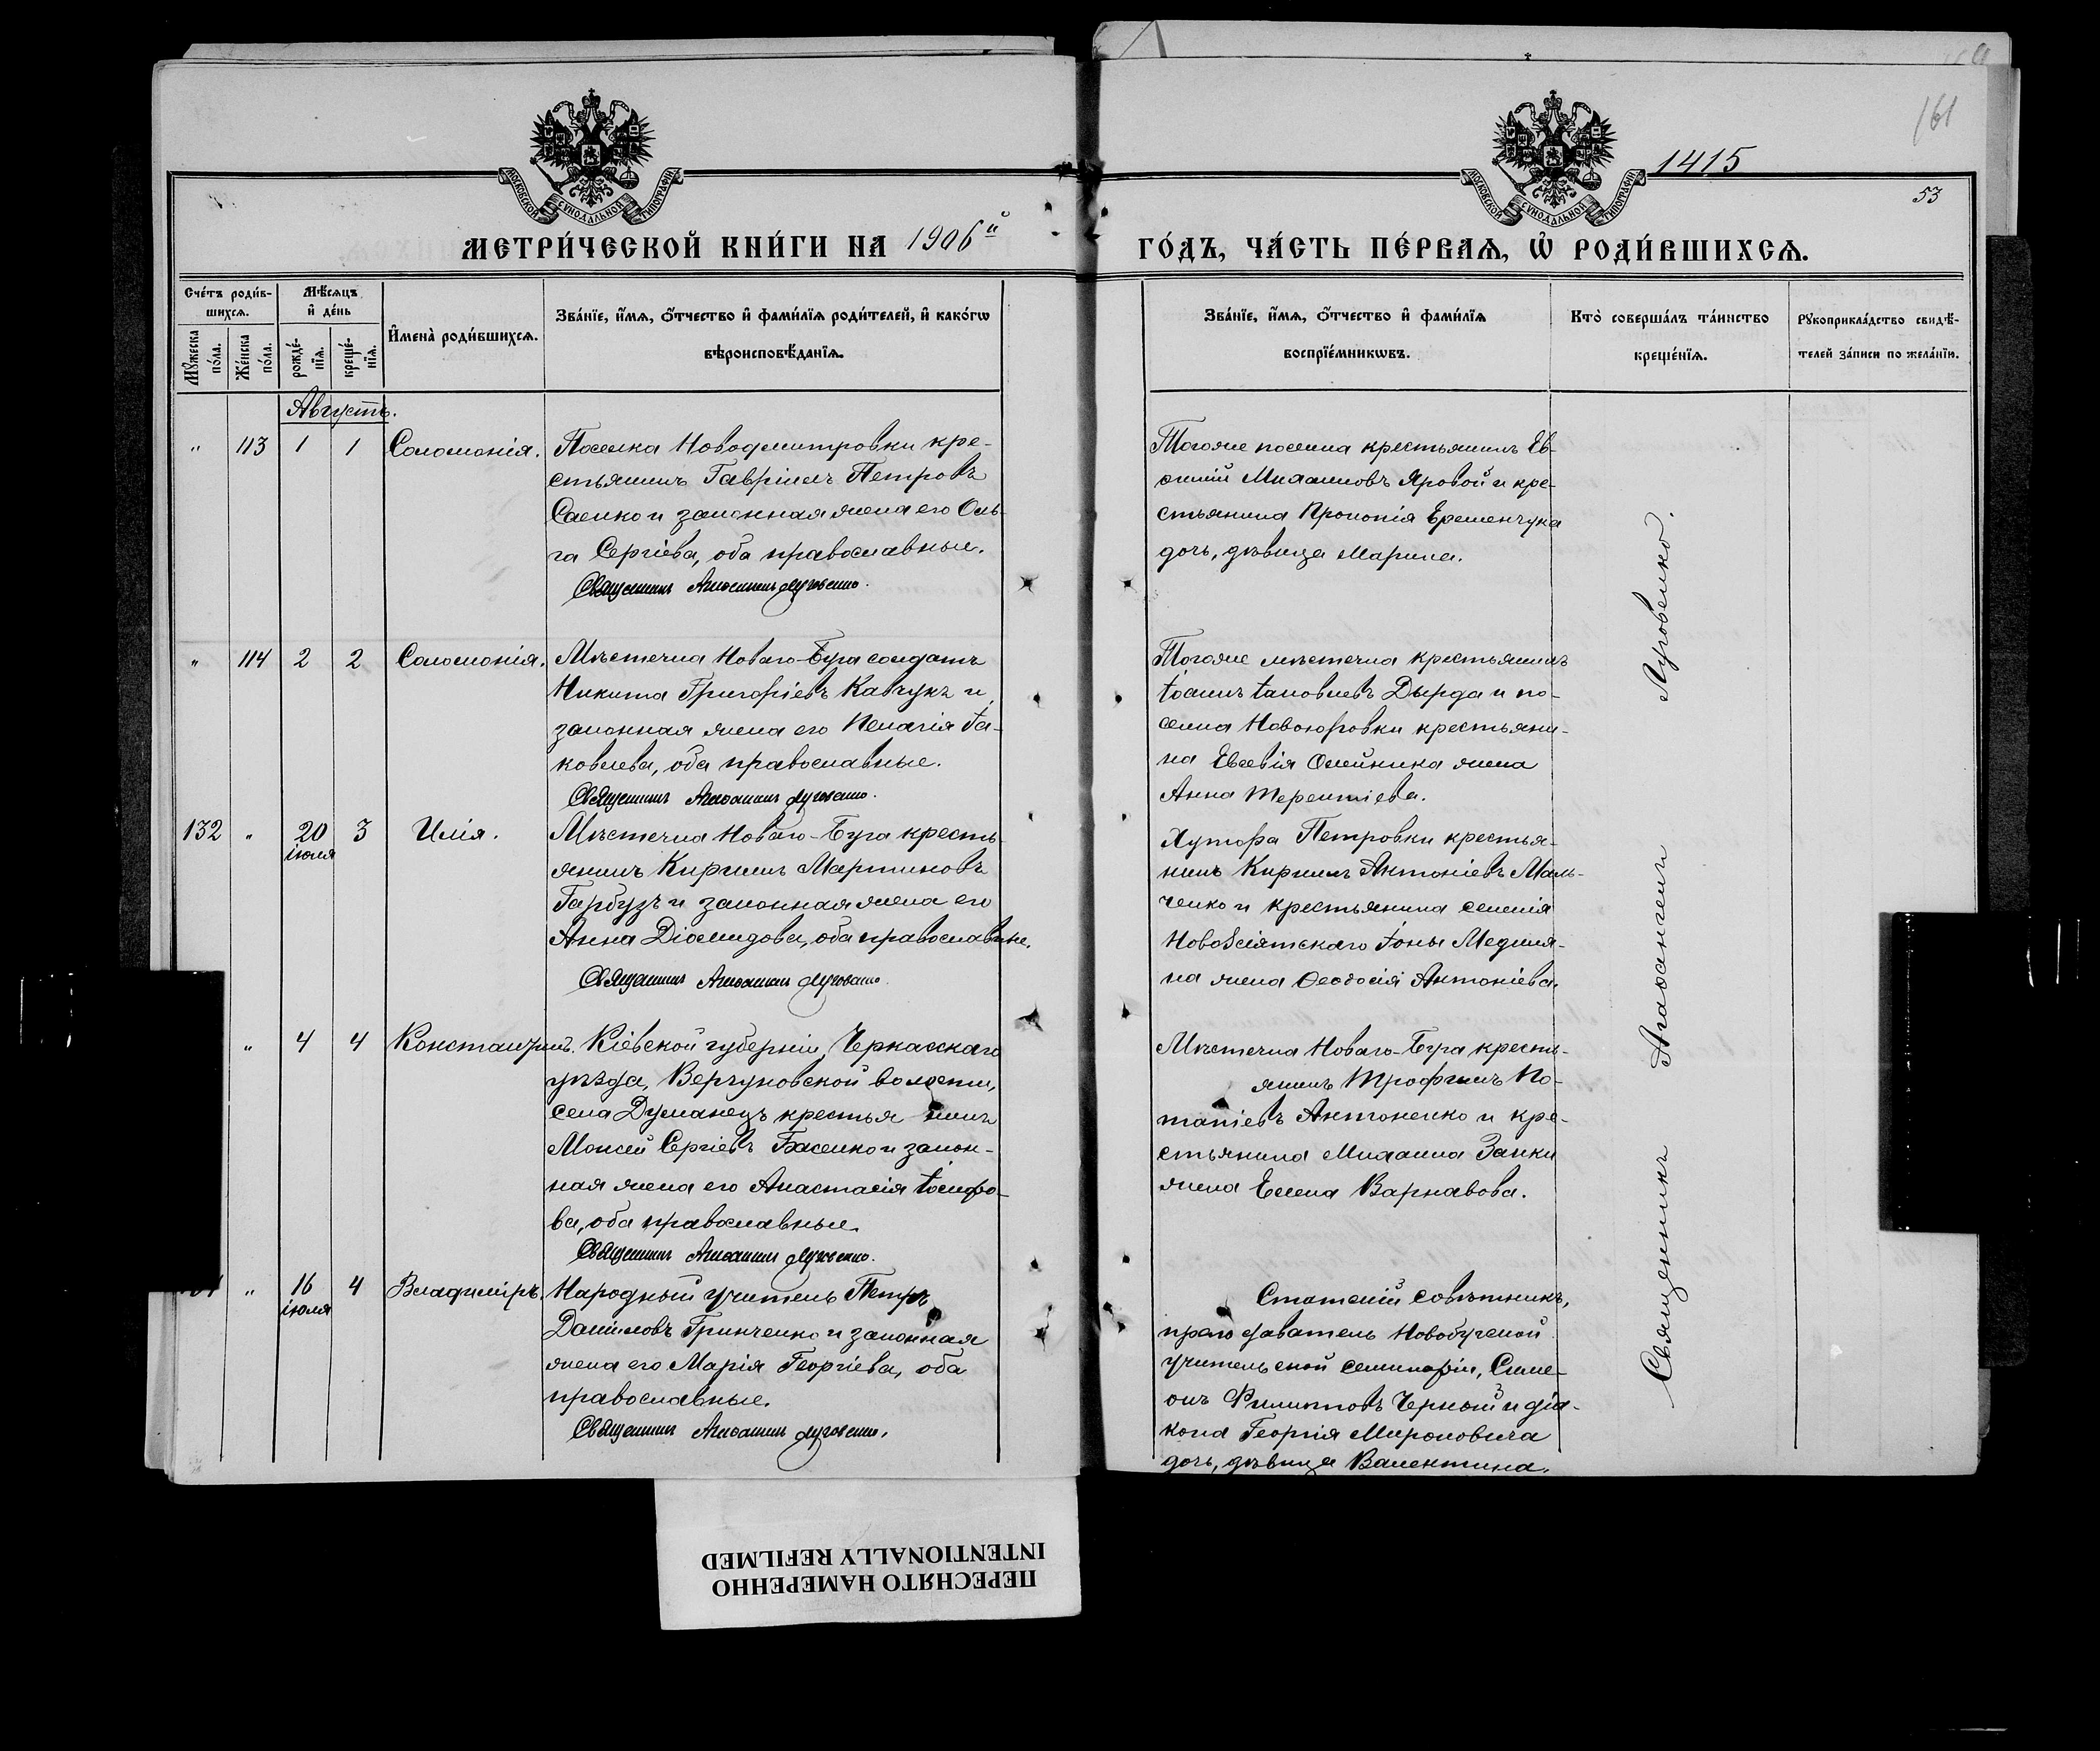 161
1415
53
МОСКОВСКОЙ СѴНОДАЛЬНОЙ ТИПОГРАФІИ
МОСКОВСКОЙ СѴНОДАЛЬНОЙ ТИПОГРАФІИ
МЕТРИ́ЧЕСКОЙ КНИ́ГИ НА 1906й
ГО́ДЪ, ЧА́СТЬ ПЕ́РВАѦ, Ѡ҆ РОДИ́ВШИХСѦ.
Сче́тъ роди́в-
шихсѧ.
Мꙋ́жеска
по́ла.
Же́нска
по́ла.
Мѣ́сѧцъ
и҆ де́нь
рожде́-
нїѧ.
креще́-
нїѧ.
И҆мена̀ роди́вшихсѧ.
Зва́нїе, и҆́мѧ, ѻ҆́тчество и҆ фами́лїѧ роди́телей, и҆ како́гѡ
вѣроисповѣ́данїѧ.
Зва́нїе, и҆́мѧ, ѻ҆́тчество и҆ фами́лїѧ
воспрїе́мникѡвъ.
Кто̀ соверша́лъ та́инство
креще́нїѧ.
Рꙋкоприкла́дство свидѣ́-
телей за́писи по жела́нїю.
Августъ.
" 113 1 1 Соломонія.
Поселка Новодмитровки кре-
стьянинъ Гавріилъ Петровъ
Саенко и законная жена его Оль-
га Сергіева, оба православные.
Священникъ Агаѳангелъ Луговенко.
Тогоже поселка крестьянинъ Ев-
ѳимій Михаиловъ Яровой и кре-
стьянина Прокопія Еременчука
дочь, дѣвица Марина.
" 114 2 2 Соломонія.
Мѣстечка Новаго-Буга солдатъ
Никита Григоріевъ Кавчукъ и
законная жена его Пелагія Іа-
ковлева, оба православные.
Священникъ Агаѳангелъ Луговенко.
Тогоже мѣстечка крестьянинъ
Іоаннъ Іаковлевъ Дырда и по-
селка Новоюрьевки крестьяни-
на Евсевія Олейника жена
Анна Терентіева.
132 " 20 3 Илія.
іюля
Мѣстечка Новаго-Буга кресть-
янинъ Кириллъ Мартиновъ
Гарбузъ и законная жена его
Анна Діомидова, оба православные.
Священникъ Агаѳангелъ Луговенко.
Хутора Петровки крестья-
нинъ Кириллъ Антоніевъ Маль-
ченко и крестьянина селенія
Новоѕсіятскаго Іоны Медиля-
на жена Ѳеодосія Антоніева.
" 4 4 Константинъ.
Кіевской губерніи, Черкасскаго
уѣзда, Вергуновской волости,
села Думанецъ крестья нинъ
Моисей Сергіевъ Басенко и закон-
ная жена его Анастасія Іосифо-
ва, оба православные.
Священникъ Агаѳангелъ Луговенко.
Мѣстечка Новаго-Буга кресть-
янинъ Трофимъ По-
тапіевъ Антоненко и кре-
стьянина Михаила Заики
жена Елена Варнавова.
" 16 4 Владиміръ.
іюля
Народный учитель Петръ
Даниловъ Гринченко и законная
жена его Марія Георгіева, оба
православные.
Священникъ Агаѳангелъ Луговенко.
Статскій совѣтникъ,
преподаватель Новобугской
учительской семинаріи, Симе-
онъ Филипповъ Черный и діа-
кона Георгія Мироновича
дочь, дѣвица Валентина.
Священникъ Агаѳангелъ Луговенко.
ПЕРЕСНЯТО НАМЕРЕННО
INTENTIONALLY REFILMED